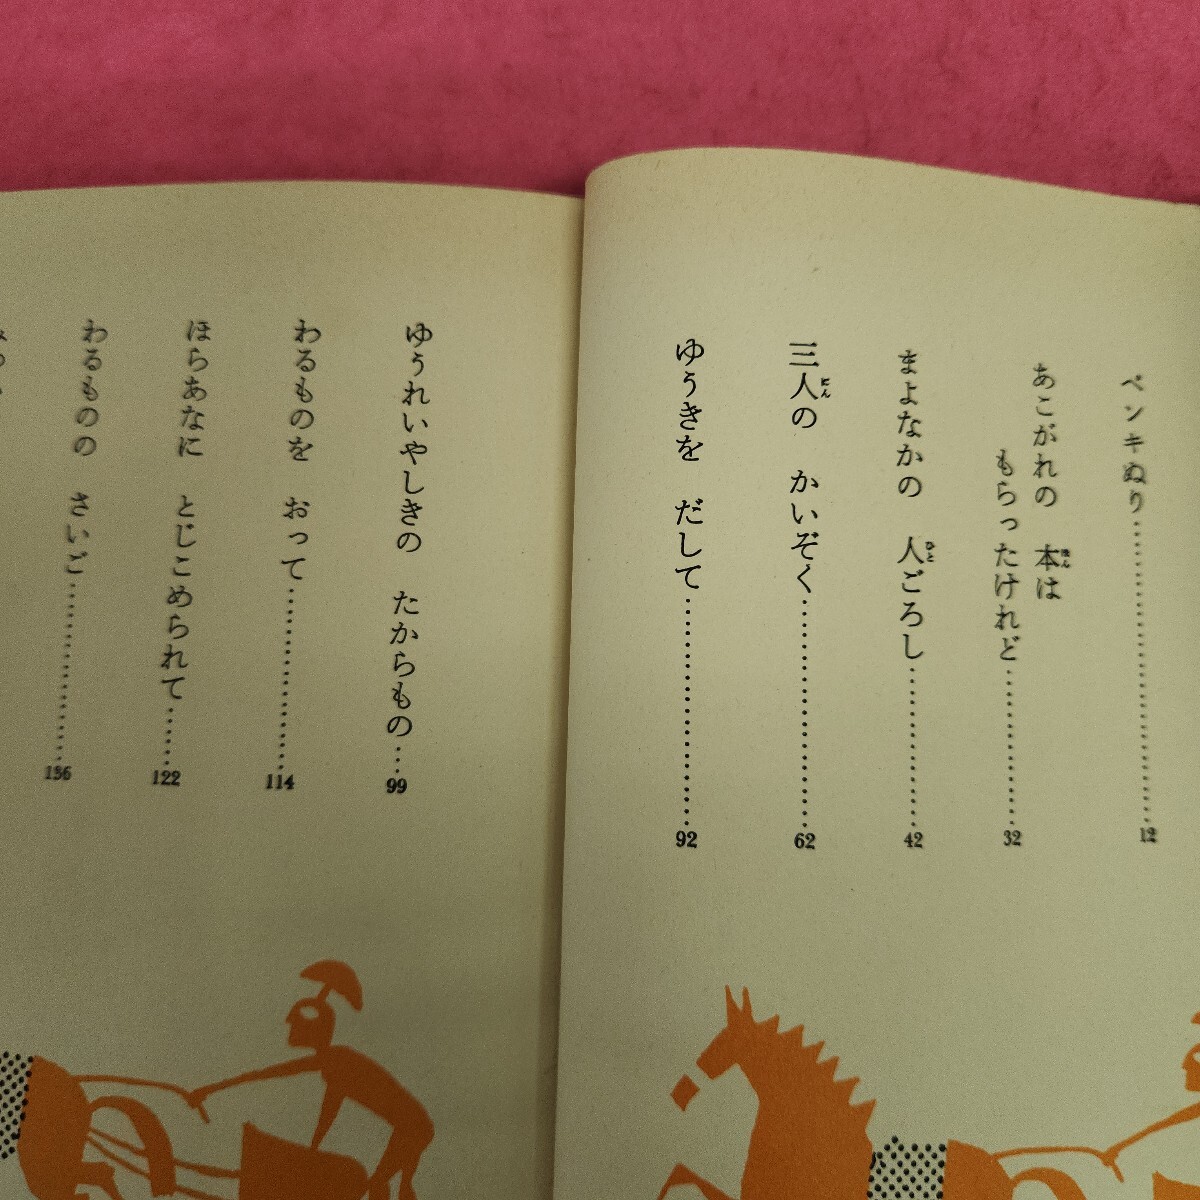 ペンキぬり……………………12
あこがれの 本は
もらったけれど……………32
まよなかの 人ごろし……………42
三人の かいぞく……………………62
ゆうきを だして……………………92
ゆうれいやしきの たからもの…99
わるものを おって………………114
ほらあなに とじこめられて……122
わるものの さいご………………136